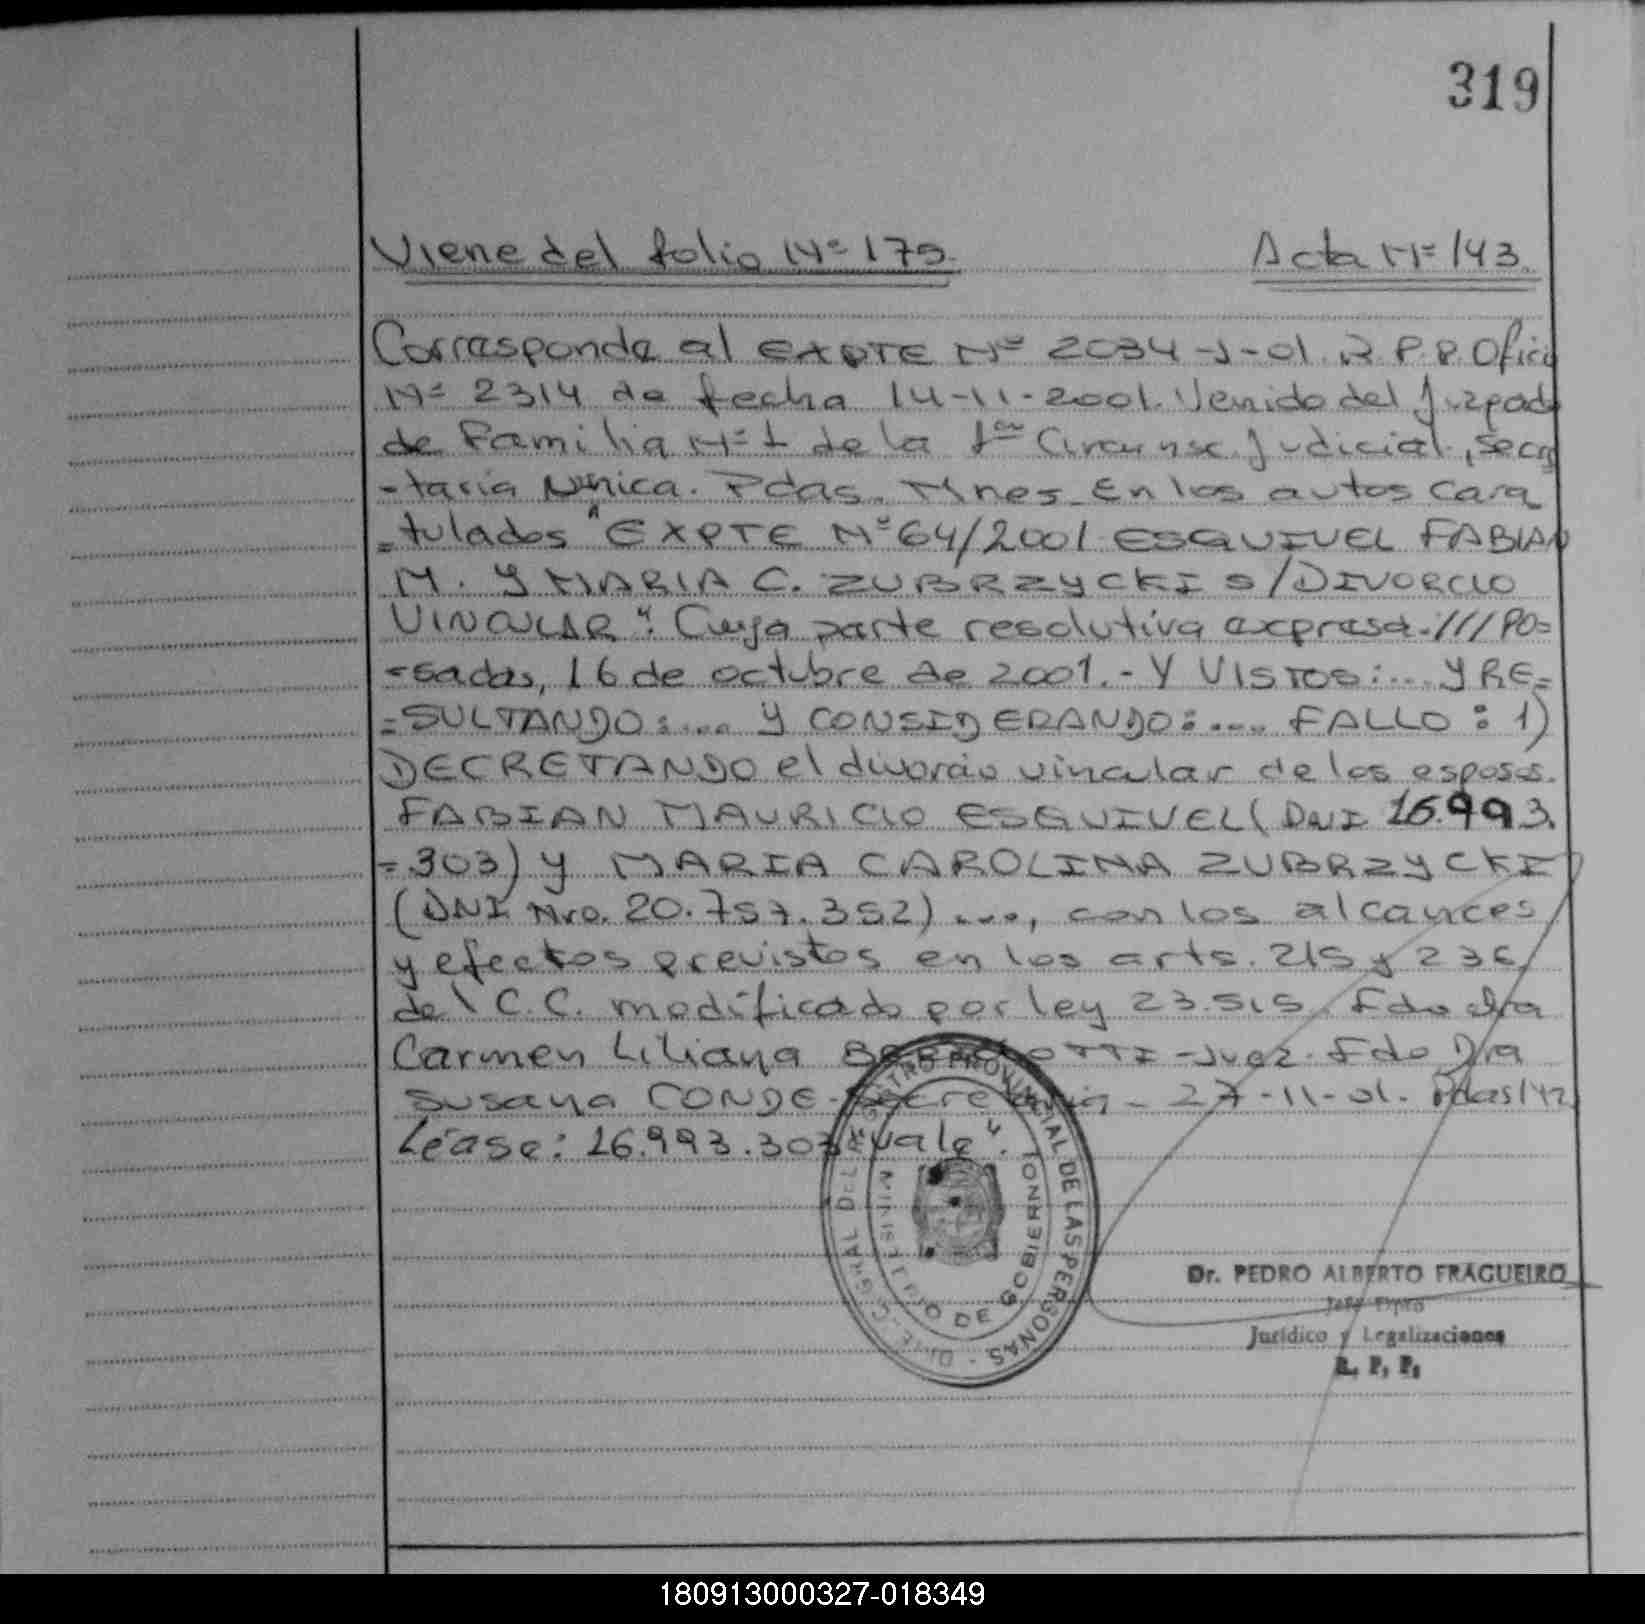 319
Viene del folio Nº 175. Acta Nº 143.
Corresponde al EXPTE Nº 2034-J-01 R.P.P. Ofici
Nº 2314 de fecha 14-11-2001. Venido del Juzgado
de Familia Nº 1 de la 1ra Circunsc. Judicial, Secre
-taria Unica. Pdas. Mnes. En los autos cara
=tulados "EXPTE Nº 64/2001 ESQUIVEL FABIAN
M. Y MARIA C. ZUBRZYCKI S/DIVORCIO
VINCULAR". Cuya parte resolutiva expresa./// PO=
=sadas, 16 de octubre de 2001.- Y VISTOS:.... Y RE=
=SULTANDO:.... Y CONSIDERANDO:.... FALLO: 1)
DECRETANDO el divorcio vincular de los esposos.
FABIAN MAURICIO ESQUIVEL (DNI 16.993.
=303) y MARIA CAROLINA ZUBRZYCKI
(DNI Nro. 20.757.352) ...., con los alcances
y efectos previstos en los arts. 215 y 236
del C.C. modificado por ley 23.515. Fdo dra
Carmen Liliana -Juez. Fdo Dra
Susana CONDE-Secretaria - 27-11-01. Pdas
Léase: 16.993.303 "vale".
DIRE-C-GRAL DEL REGISTRO PROVINCIAL DE LAS PERSONAS -
MINISTERIO DE GOBIERNO
Dr. PEDRO ALBERTO FRAGUEIRO
Jefe Dpto
Jurídico y Legalizaciones
R. P. P.
180913000327-018349